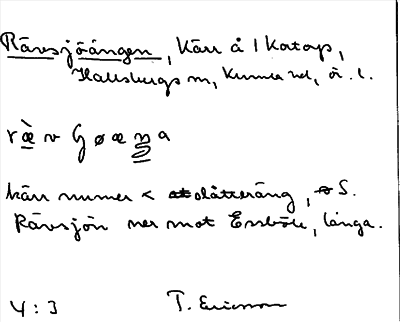 Rävsjöängen, Kärr å 1 Katorp,
Hallsbergs sn, Kumla hd, ör. l.
kärr numer < slåtteräng, S.
Rävsjön ner mot Essböle, långa.
4:3 T. Ericsson